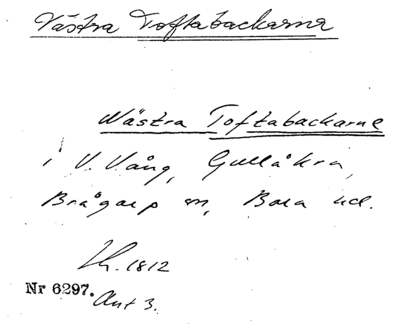 Västra Toftabackarne
Wästra Toftabackarne
i V. Vång, Gullåkra,
Brågarp sn, Bara hd.
Lh. 1812
Nr 6297. Akt 3.